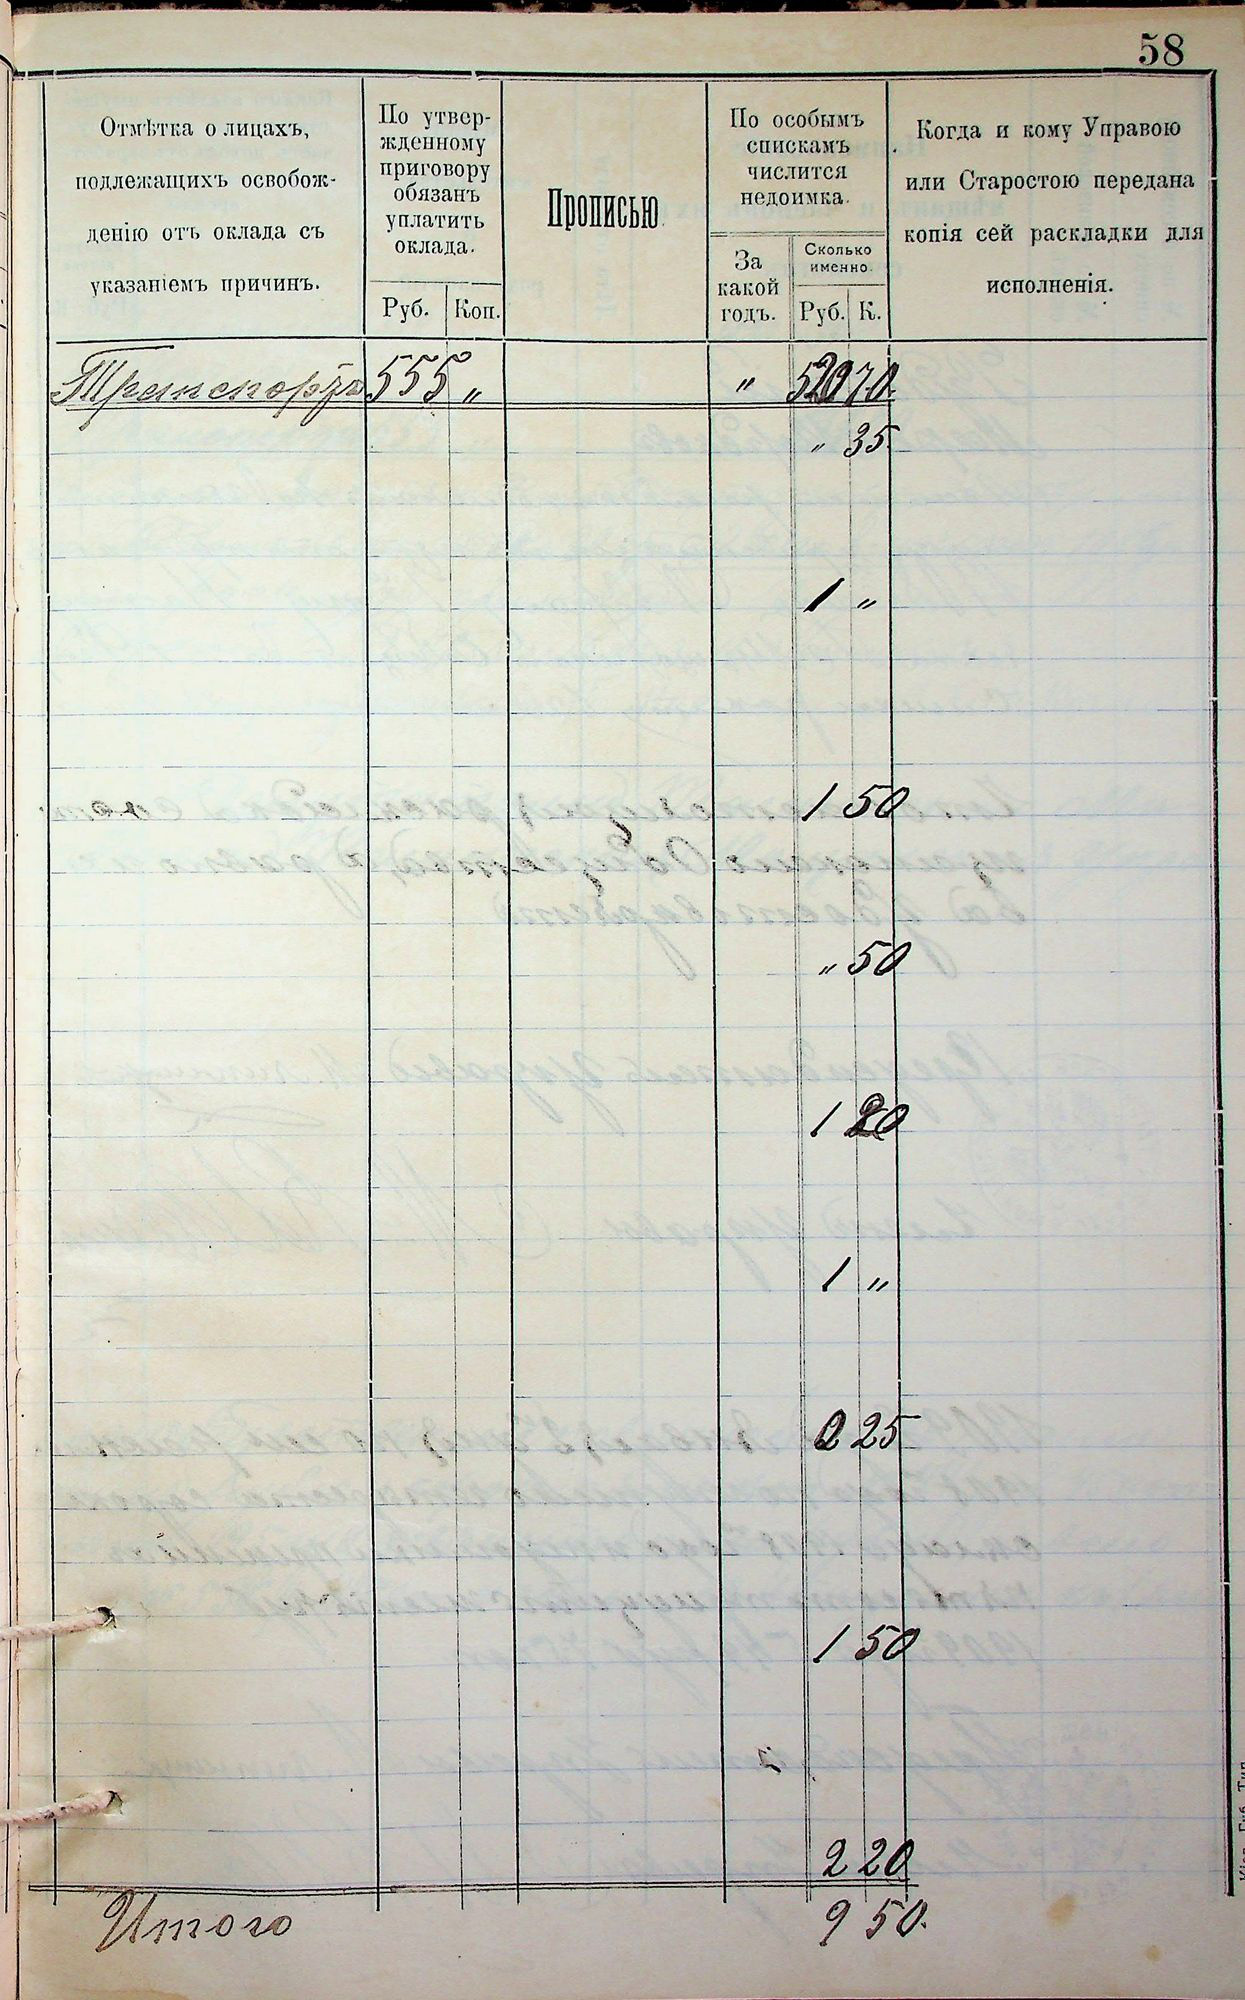 58
Отмѣтка о лицахъ,
подлежащихъ освобож-
денію отъ оклада съ
указаніемъ причинъ.
По утвер-
жденному
приговору
обязанъ
уплатить
оклада.
Руб. Коп.
Прописью.
По особымъ
спискамъ
числится
недоимка.
За
какой
годъ.
Сколько
именно.
Руб. К.
Когда и кому Управою
или Старостою передана
копія сей раскладки для
исполненія.
Транспортъ 555 „ „ 520 70
„ 35
1 „
1 50
„ 50
1 20
1 „
0 25
1 50
2 20
Итого 9 50.